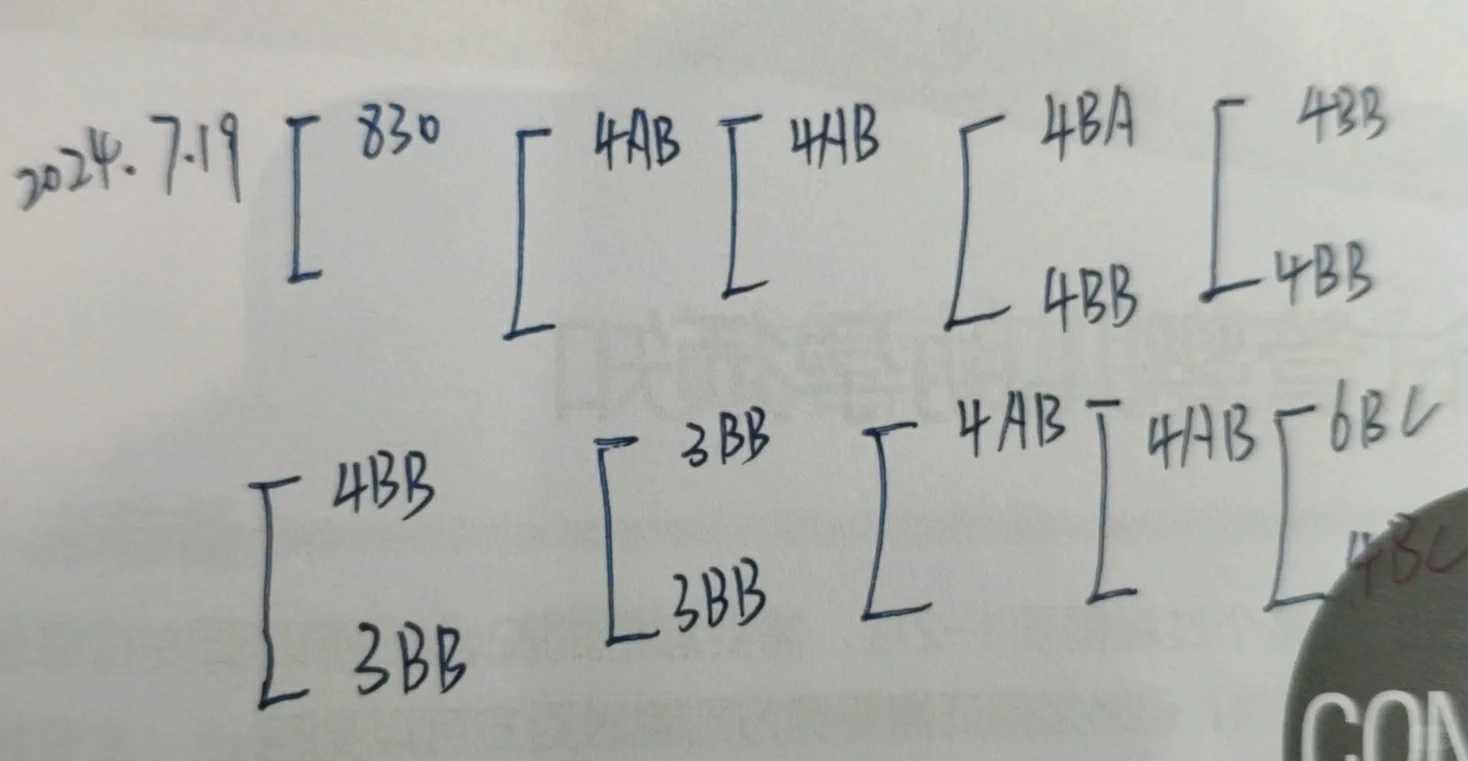 2024.7.19 [ 830 [ 4AB [ 4AB [ 4BA [ 4BB
4BB 4BB
[ 4BB [ 3BB [ 4AB [ 4AB [ 6BC
3BB 3BB 4BC
CON